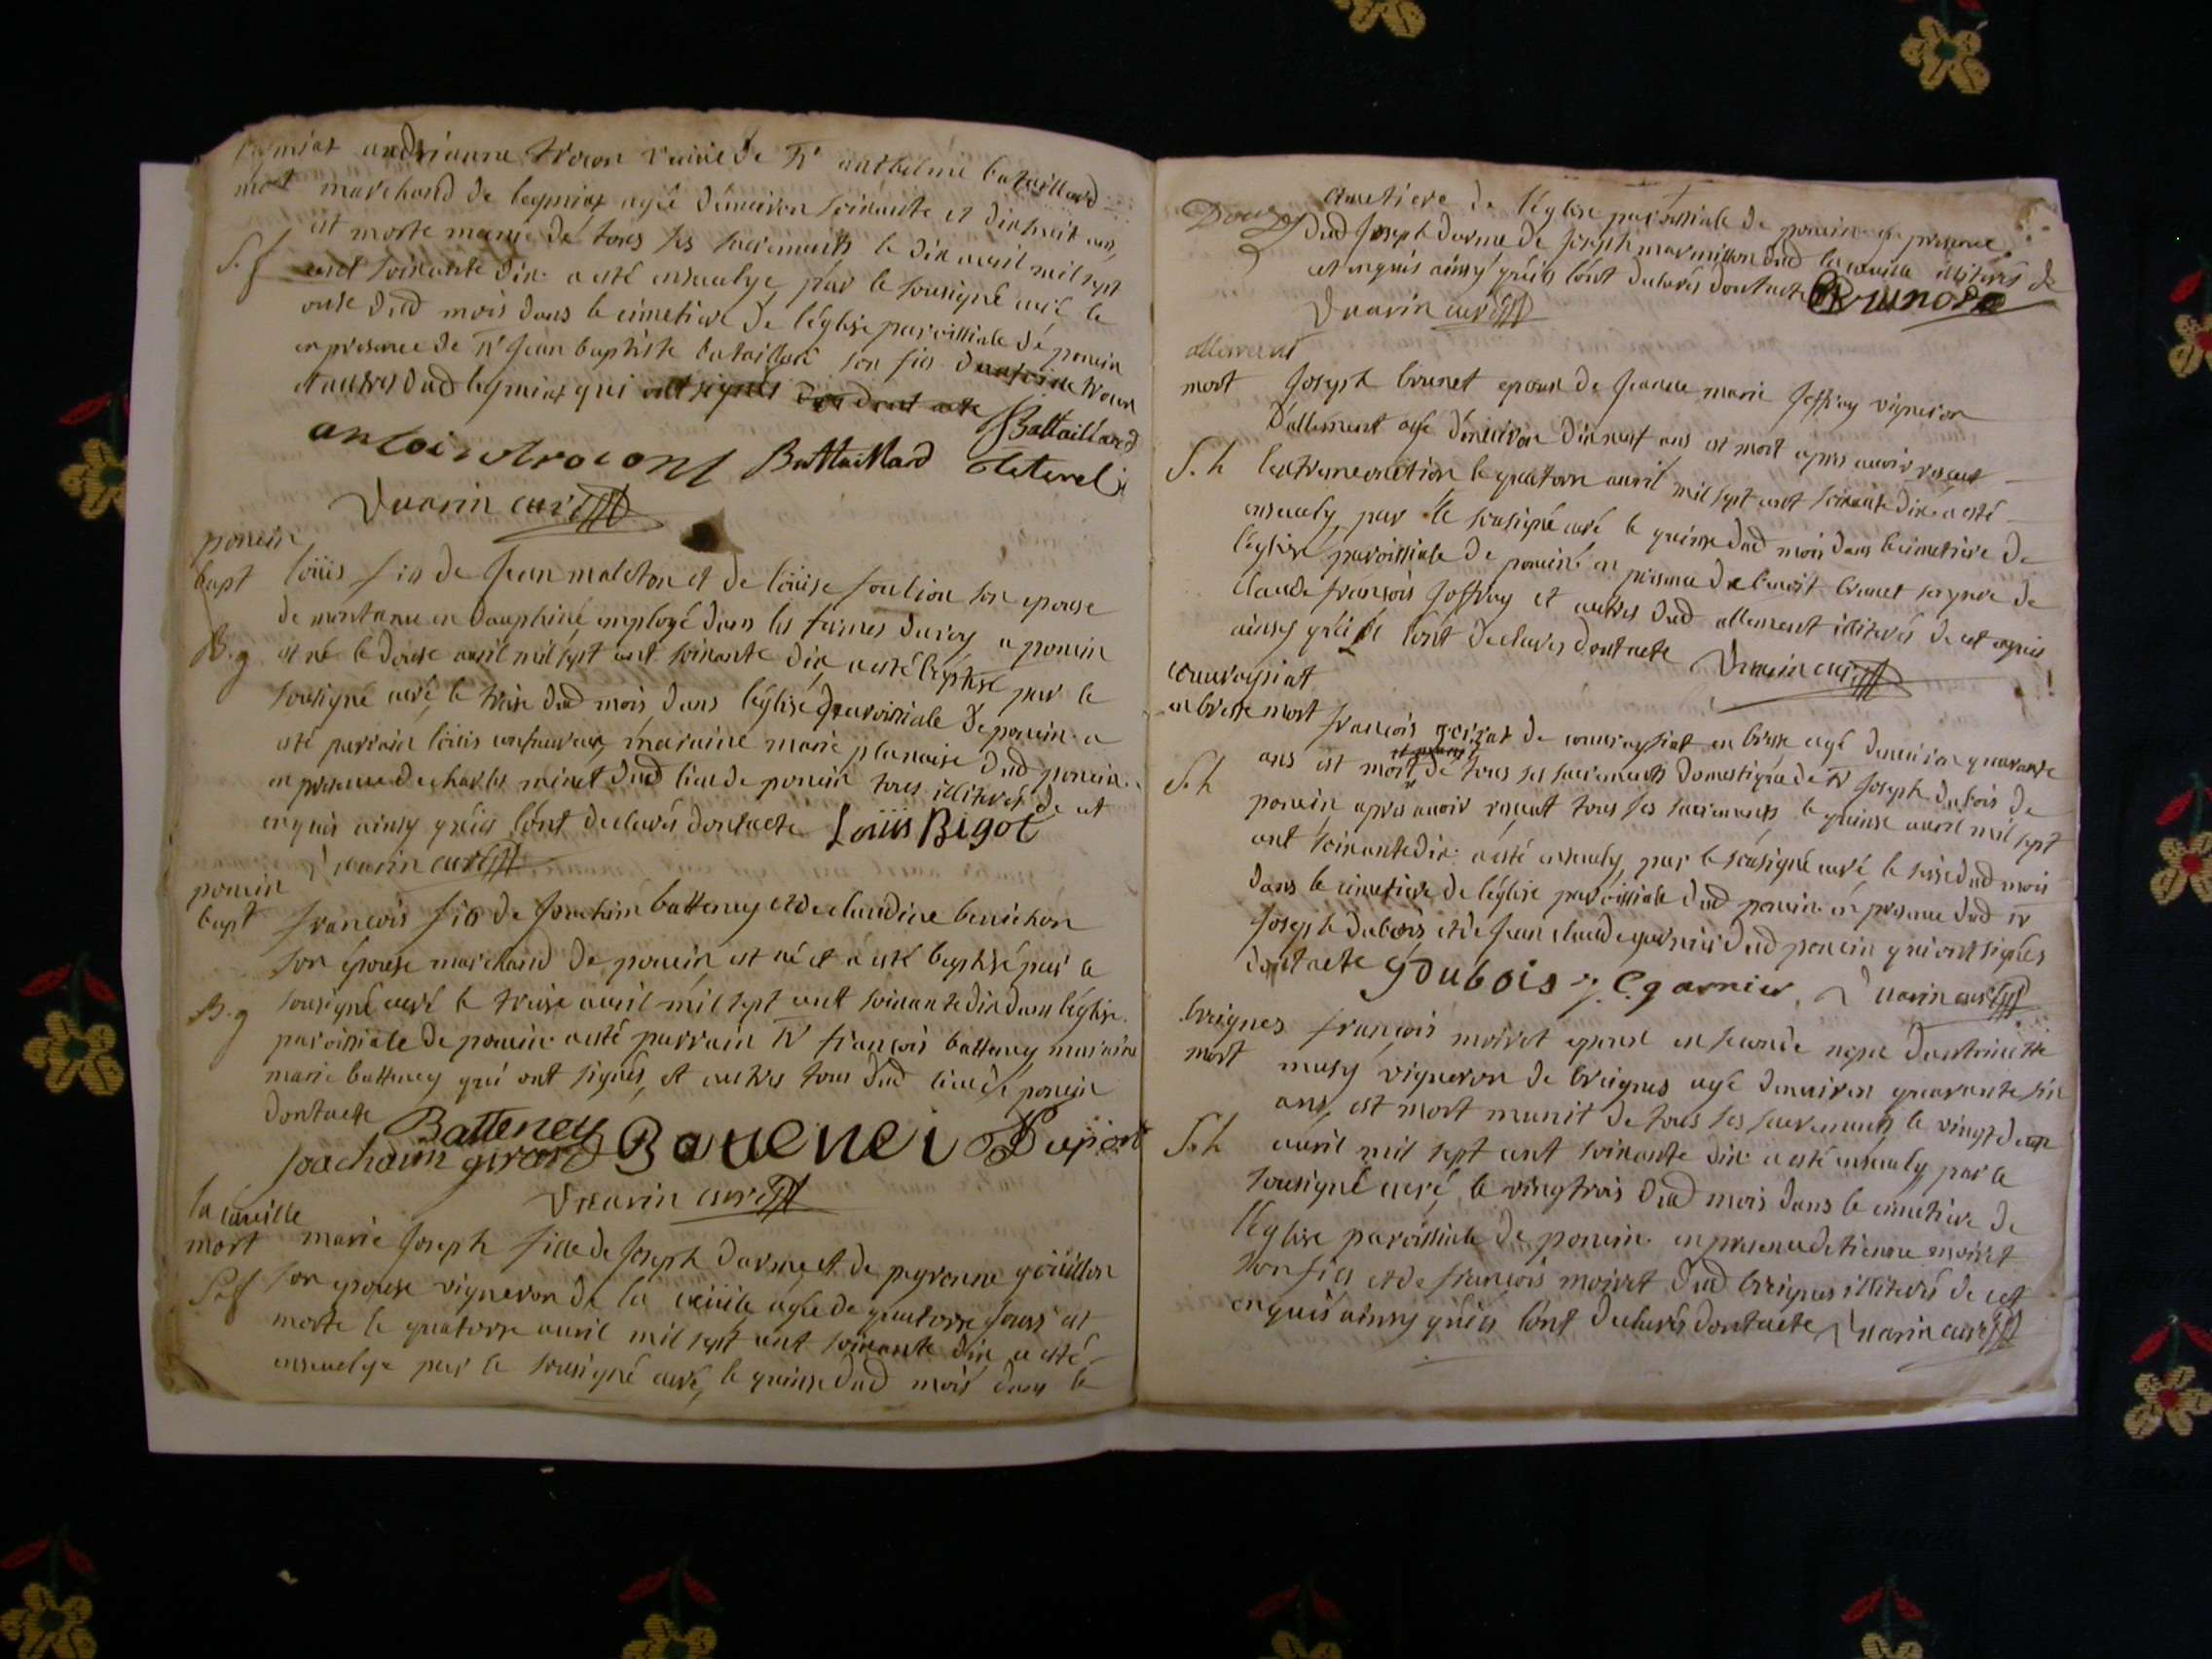 andrianne trocon veuve de Sr anthelme bataillard
mort marchand de leymiat agée d'environ soixante et dixhuit ans,
est morte munie de tous ses sacrements le dix avril mil sept
S. f cent soixante dix a esté ensevelye par le sousigné curé le
onse dud mois dans le cimetiere de l'église paroissiale de poncin
en presence de Sr Jean baptiste bataillard son fils
et autres dud leymiat qui ont signés dont acte
Battaillard
Battaillard
Duarin curé
poncin
bapt loüis fils de Jean maleton et de loüise son epouse
de en dauphiné employé dans les fermes du roy a poncin
B. g est né le douse avril mil sept cent soixante dix a esté baptisé par le
sousigné curé le treise dud mois dans l'église paroissiale de poncin a
esté parrain loüis maraine marie planaise dud poncin
en presence de charles minet dud lieu de poncin tous illiterés de ce
enquis ainsy qu'ils l'ont declarés dont acte Loüis Bigot
Duarin curé
poncin
bapt françois fils de Joachim batteney et de claudine benichon
son epouse marchand de poncin est né et a esté baptisé par le
B. g sousigné curé le treise avril mil sept cent soixante dix dans l'église
paroissiale de poncin a esté parrain Sr françois batteney maraine
marie batteney qui ont signés et autres tous dud lieu de poncin
dont acte Batteney
Joachaim girard
Duarin curé
la cueille
mort marie Joseph fille de Joseph darme et de peyronne goüillon
S. f son epouse vigneron de la cueille agée de quatorse jours est
morte le quatorse avril mil sept cent soixante dix a esté
ensevelye par le sousigné curé le quinse dud mois dans le
cimetiere de l'église paroissiale de poncin en presence
dud Joseph darme de Joseph marmillon dud la cueille illiterés de
ce enquis ainsy qu'ils l'ont declarés dont acte
Duarin curé
allement
mort Joseph brunet epoux de Jeanne marie Joffray vigneron
d'allement agé d'environ dixneuf ans est mort apres avoir receut
S. h l'extremeonction le quatorse avril mil sept cent soixante dix a esté
ensevely par le sousigné curé le quinse dud mois dans le cimetiere de
l'église paroissiale de poncin en presence de benoit brunet son pere de
claude françois Joffray et autres dud allement illiterés de ce enquis
ainsy qu'ils l'ont declarés dont acte Duarin curé
en bresse mort françois de en bresse agé d'environ quarante
ans est mort de tous ses sacrements domestique de Sr Joseph dubois de
S. h poncin apres avoir receut tous ses sacrements le quinse avril mil sept
cent soixante dix a esté ensevely par le sousigné curé le seise dud mois
dans le cimetiere de l'église paroissiale dud poncin en presence dud Sr
Joseph dubois et de Jean claude garnier dud poncin qui ont signés
dont acte J Dubois J. C. garnier Duarin curé
breignes françois moiret epoux en seconde nopce d'antoinette
mort musy vigneron de breignes agé d'environ quarante six
ans, est mort munit de tous ses sacrements le vingt deux
S. h avril mil sept cent soixante dix a esté ensevely par le
sousigné curé le vingt trois dud mois dans le cimetiere de
l'église paroissiale de poncin en presence d'etienne moiret
son fils et de françois moiret dud breignes illiterés de ce
enquis ainsy qu'ils l'ont declarés dont acte Duarin curé